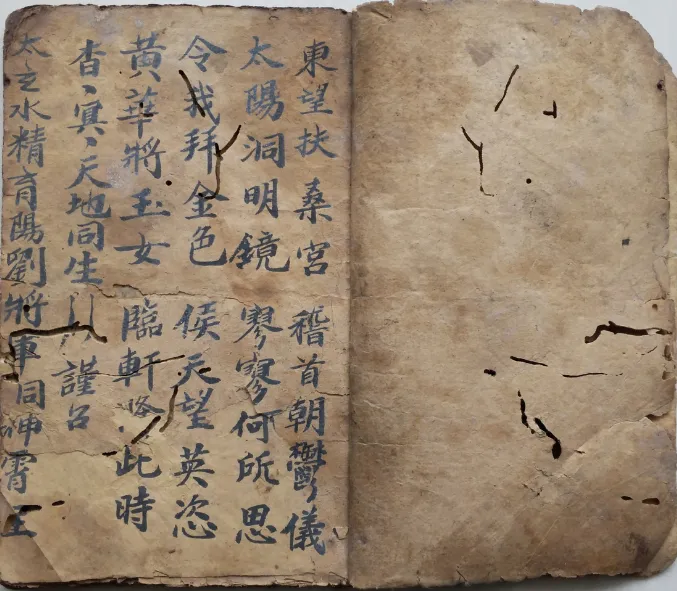 東望扶桑宮 稽首朝鬱儀
太陽洞明鏡 寥寥何所思
令我拜金色 候天望英恣
黃華將玉女 臨軒此時
杳丶冥丶天地同生 謹召
太玄水精育陽劉將軍同神霄王